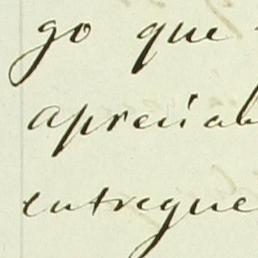 go que
apreciab
entregue